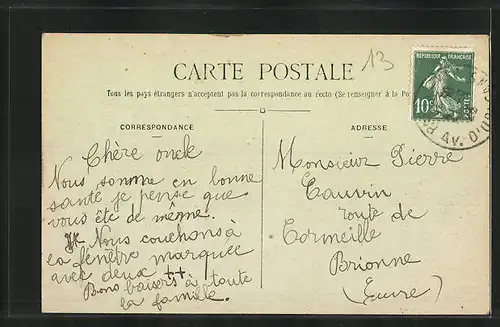 13
CARTE POSTALE
Tous les pays étrangers n'acceptent pas la correspondance au recto (Se renseigner à la Po
CORRESPONDANCE
ADRESSE
REPUBLIQUE FRANÇAISE
10c
POSTES
AV. D'
Chère onck
Nous somme en bonne
santé je pense que
vous été de même.
Nous couchons à
la fenêtre marquée
avec deux ++
Bons baisers à toute
la famille.
Monsieur Pierre
Cauvin
route de
Cormeille
Brionne
(Eure)